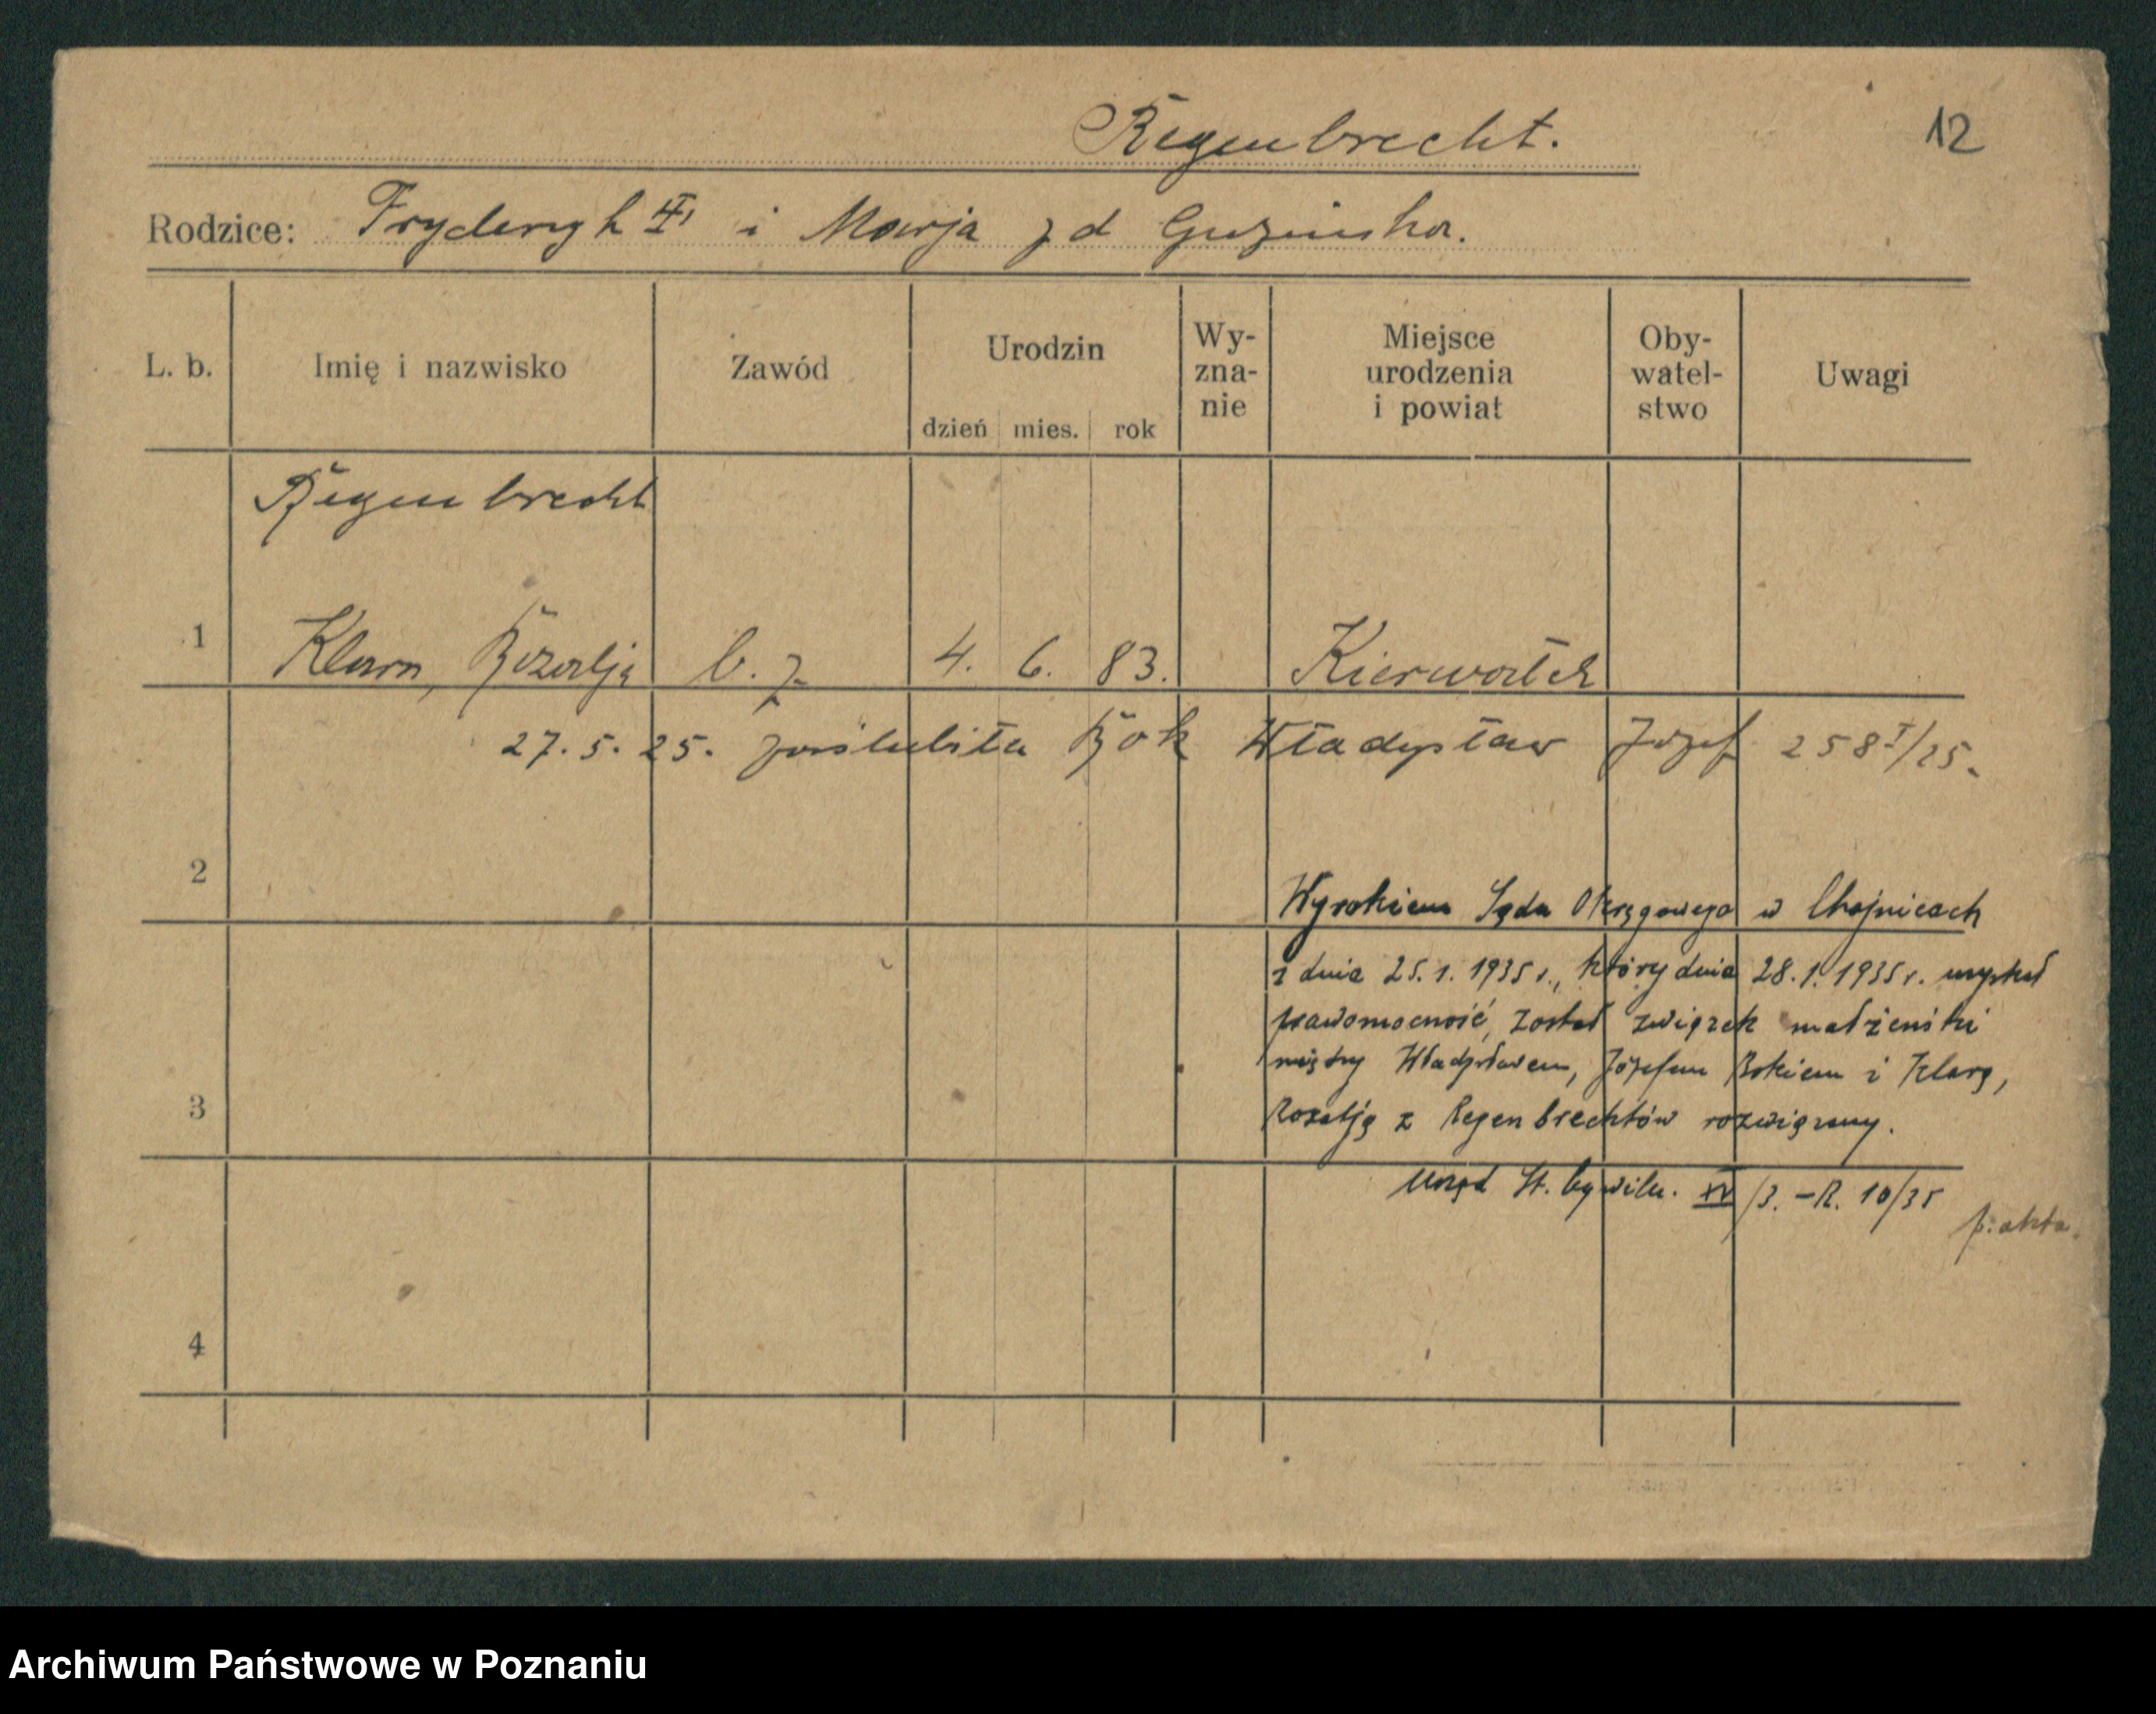 Regenbrecht.
12
Rodzice: Fryderyk II i Marja zd Guzińska.
L. b.
Imię i nazwisko
Zawód
Urodzin
dzień mies. rok
Wy-
zna-
nie
Miejsce
urodzenia
i powiat
Oby-
watel-
stwo
Uwagi
Regenbrecht
1 Klara, Rozalja b. z. 4. 6. 83. Kierwałek
27. 5. 25. poślubiła Rok Władysław Józef 258 I/25.
2
Wyrokiem Sądu Okręgowego w Chojnicach
z dnia 25.1.1935 r., który dnia 28.1.1935 r. uzyskał
prawomocność, został związek małżeński
między Władysławem, Józefem Rokiem i Klarą,
Rozalją z Regenbrechtów rozwiązany.
3
Urząd St. Cywiln. XV/3. - R. 10/35
p. akta.
4
Archiwum Państwowe w Poznaniu